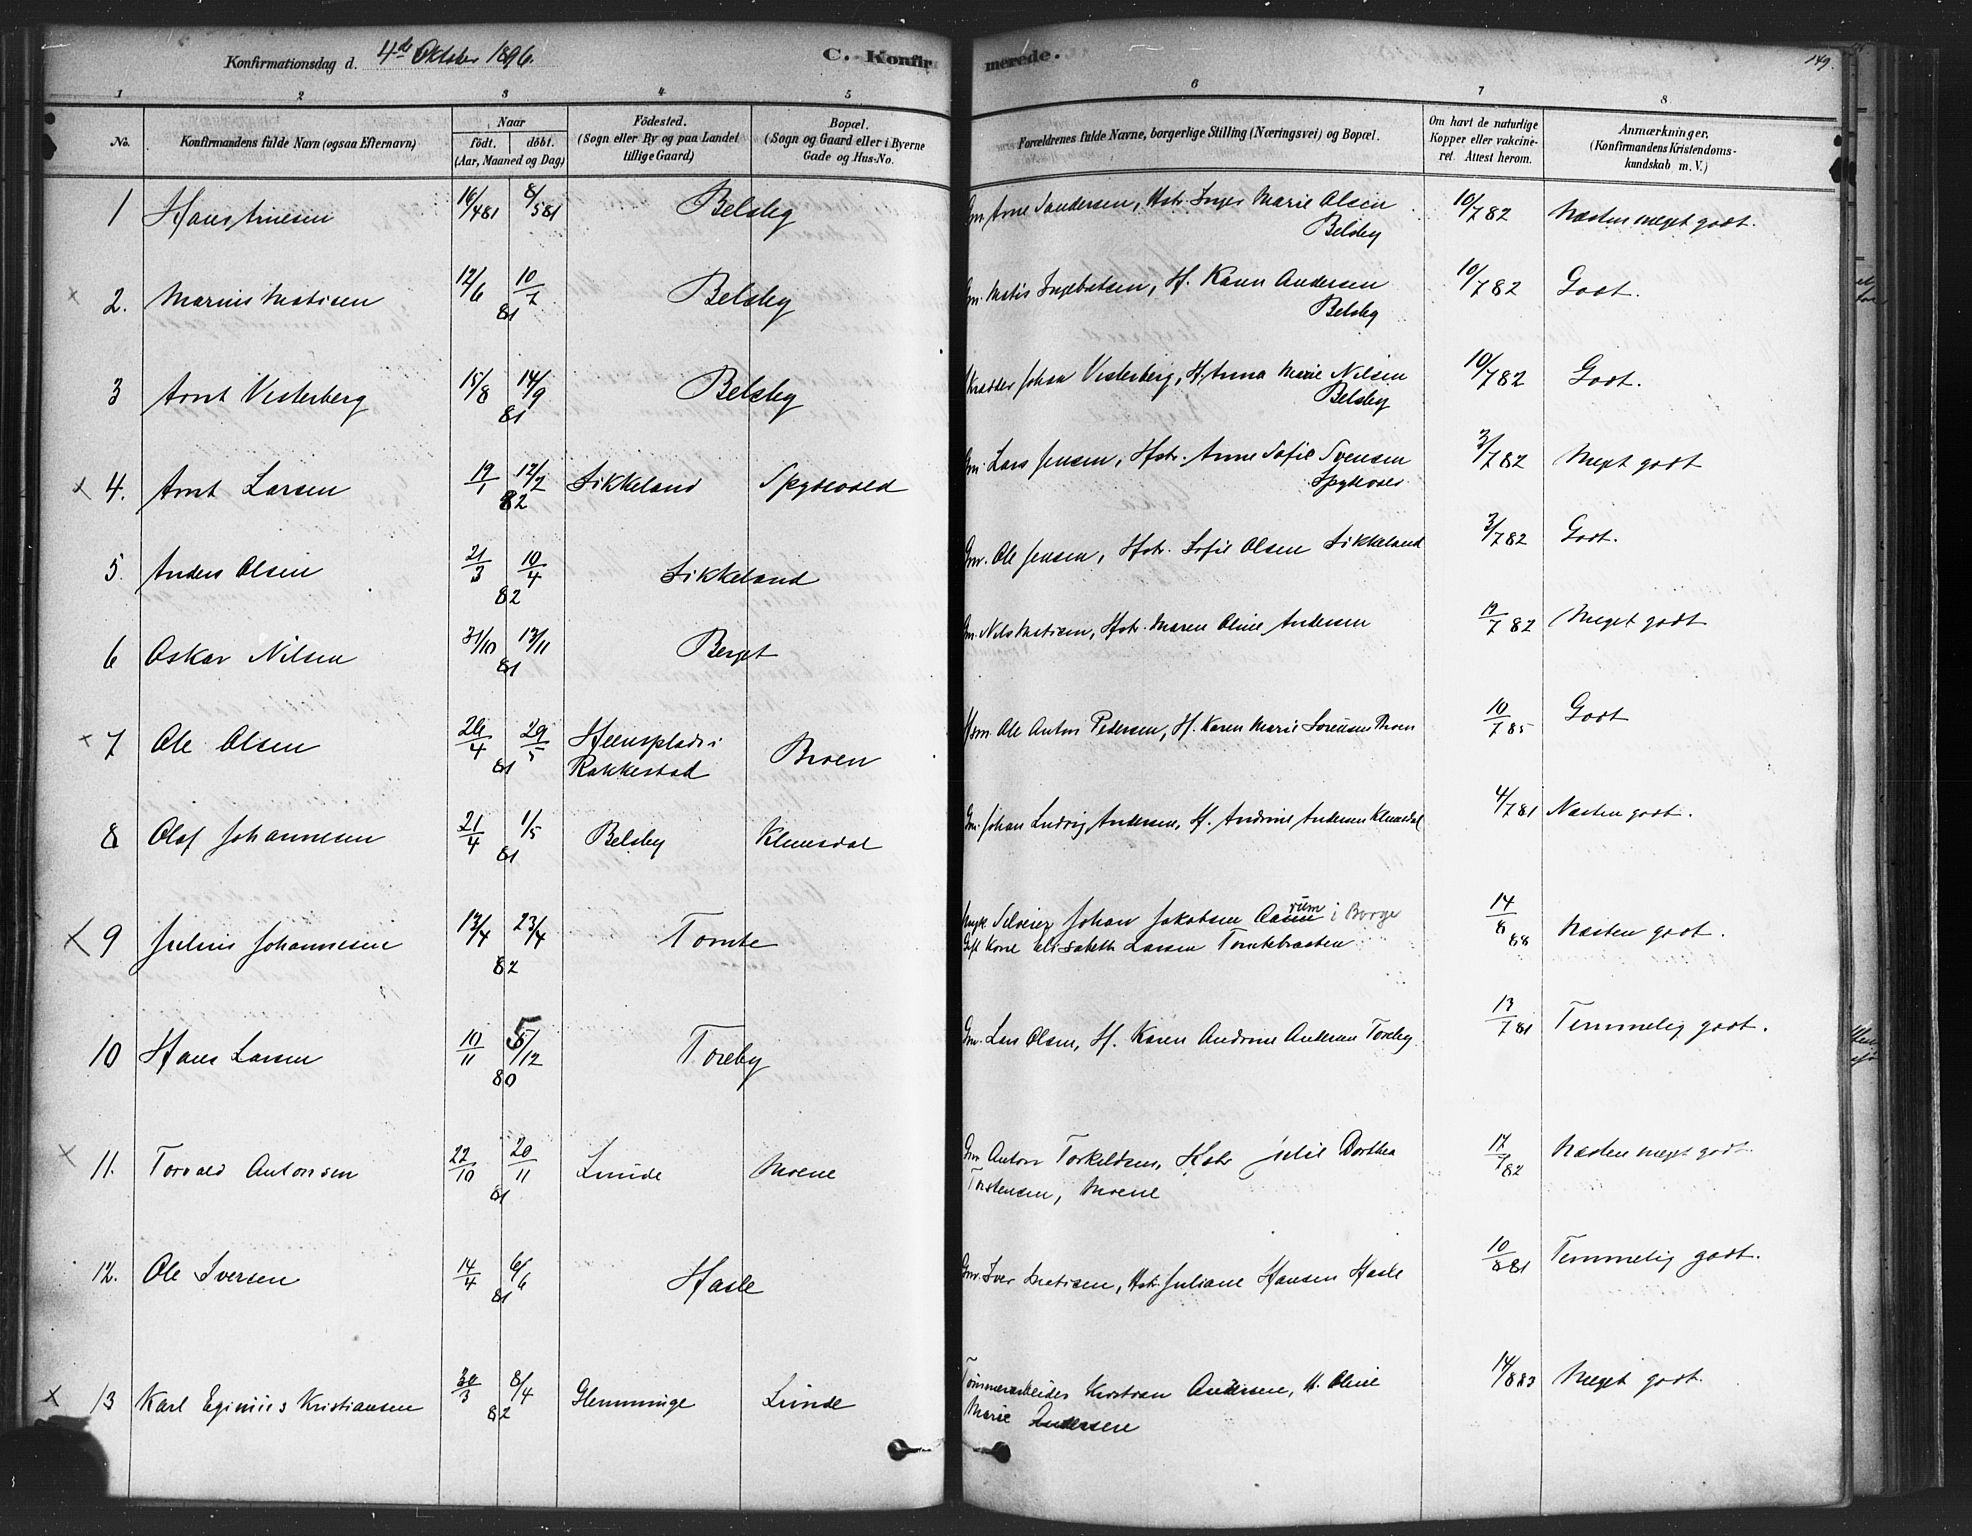 Konfirmationsdag d. 4de Oktober 1896. C. Konfirmerede. 149.
1 2 3 4 5 6 7 8
No. Konfirmandens fulde Navn (ogsaa Efternavn) Naar Födt. döbt. (Aar, Maaned og Dag) Födested. (Sogn eller By og paa Landet tillige Gaard) Bopæl. (Sogn og Gaard eller i Byerne Gade og Hus-No. Forældrenes fulde Navne, borgerlige Stilling (Næringsvei) og Bopæl. Om havt de naturlige Kopper eller vakcineret. Attest herom. Anmærkninger. (Konfirmandens Kristendomskundskab m. V.)
1 Hans Arnesen 16/4 81 8/5 81 Belsby Gm. Arne Sandersen, Hstr. Inger Marie Olsen Belsby 10/7 82 Næsten meget godt.
x 2. Marius Matisen 12/6 10/7 81 Belsby Gm. Matis Ingebretsen, H. Karen Andersen Belsby 10/7 82 Godt.
3 Arnt Vesterberg 15/8 14/9 81 Belsby Skrædder Johan Vesterberg, H. Anna Marie Nilsen Belsby 10/7 82 Godt.
x 4. Arnt Larsen 19/1 12/2 82 Sikkeland Spydevold Gm. Lars Jensen, Hstr. Anne Sofie Svensen 3/7 82 Meget godt
5. Anders Olsen 21/3 10/4 82 Sikkeland Gmr. Ole Jensen, Hstr. Sofie Olsen Sikkeland 3/7 82 Godt.
6 Oskar Nilsen 31/10 13/11 81 Berget Gm. Nils Matisen, Hstr. Maren Oline Andersen 19/7 82 Meget godt
x 7 Ole Olsen 26/4 29/5 81 Heensplads i Rakkestad Broen Hsm. Ole Anton Pedersen, H. Karen Marie Sörensen Broen 10/7 85 Godt
8 Olaf Johannesen 21/4 1/5 81 Belsby Klemsdal Gm. Johan Ludvig Andersen, H. Andrine Andersen Klemsdal 4/7 81 Næsten godt.
x 9 Julius Johannesen 13/4 23/4 82 Tomte Ungk. Johan Jakobsen i Borge
Elisabeth Larsen Tomtebraaten 14/8 88 Næsten godt.
10 Hans Larsen 10/11 5/12 80 Toreby Gm. Lars Olsen, H. Karen Andrine Andersen Toreby. 13/7 81 Temmelig godt.
x 11. Torvald Antonsen 22/10 20/11 81 Lunde Moene Gm. Anton Torkildsen, Hstr Julie Dorthea
Torstensen, Moene 17/7 82 Næsten meget godt.
12. Ole Iversen 14/4 6/6 81 Hasle Gmr. Iver Matisen, Hstr. Juliane Hansen Hasle 10/8 81 Temmelig godt.
x 13 Karl Eginius Kristiansen 30/3 8/4 82 Glemminge Lunde Tömmerarbeider Kristian Andersen, H. Oline
Marie Andersen 14/8 83 Meget godt.